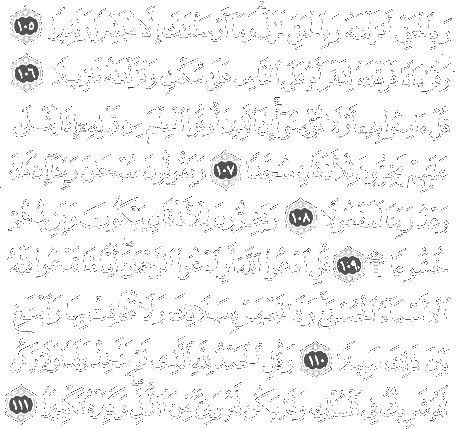 وَبِالْحَقِّ أَنزَلْنَاهُ وَبِالْحَقِّ نَزَلَ وَمَا أَرْسَلْنَاكَ إِلَّا مُبَشِّرًا وَنَذِيرًا ١٠٥
وَقُرْآنًا فَرَقْنَاهُ لِتَقْرَأَهُ عَلَى النَّاسِ عَلَىٰ مُكْثٍ وَنَزَّلْنَاهُ تَنزِيلًا ١٠٦
قُلْ آمِنُوا بِهِ أَوْ لَا تُؤْمِنُوا إِنَّ الَّذِينَ أُوتُوا الْعِلْمَ مِن قَبْلِهِ إِذَا يُتْلَىٰ
عَلَيْهِمْ يَخِرُّونَ لِلْأَذْقَانِ سُجَّدًا ١٠٧ وَيَقُولُونَ سُبْحَانَ رَبِّنَا إِن كَانَ
وَعْدُ رَبِّنَا لَمَفْعُولًا ١٠٨ وَيَخِرُّونَ لِلْأَذْقَانِ يَبْكُونَ وَيَزِيدُهُمْ
خُشُوعًا ۩ ١٠٩ قُلِ ادْعُوا اللَّهَ أَوِ ادْعُوا الرَّحْمَٰنَ أَيًّا مَّا تَدْعُوا فَلَهُ
الْأَسْمَاءُ الْحُسْنَىٰ وَلَا تَجْهَرْ بِصَلَاتِكَ وَلَا تُخَافِتْ بِهَا وَابْتَغِ
بَيْنَ ذَٰلِكَ سَبِيلًا ١١٠ وَقُلِ الْحَمْدُ لِلَّهِ الَّذِي لَمْ يَتَّخِذْ وَلَدًا وَلَمْ يَكُن
لَّهُ شَرِيكٌ فِي الْمُلْكِ وَلَمْ يَكُن لَّهُ وَلِيٌّ مِّنَ الذُّلِّ وَكَبِّرْهُ تَكْبِيرًا ١١١